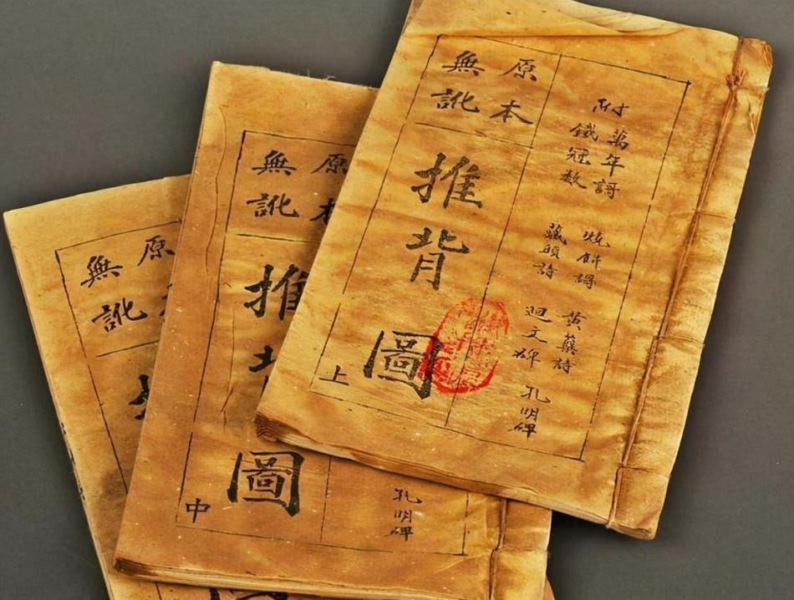 原本
無訛
推背圖
上
附
萬年謌
鐵冠數
燒餅謌
藏頭詩
黃蘗詩
迴文碑
孔明碑
原本
無訛
推背圖
中
孔明碑
原
無訛